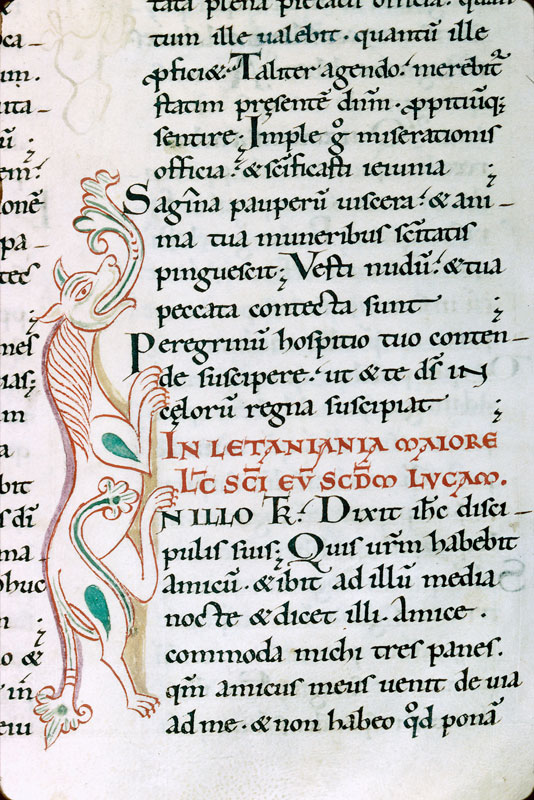 ca-
um.
uta-
ū ;
em:
onē
pa-
tec
nes
ias;
m
a
bit
s dī
ma-
huc
n ;
o &
in
eui
tata plena pietatis officia. quan
tum ille ualebit. quantū ille
ꝓfici&. Taliter agendo. merebit᷑
statim p̄sentē dn̄m. ꝓpitiūq;
sentire; Imple gͦ miserationis
officia. & sc̄ificasti ieiunia ;
Sagīna pauperū uiscera. & ani-
ma tua muneribus sc̄itatis
pinguescit; Vesti nudū. & tua
peccata contecta sunt ;
Peregrinū hospitio tuo conten-
de suscipere. ut & te d̄s in
cęlorū regna suscipiat ;
IN LETANIANIA MAIORE
LC̄ SC̄I EV̄ SCD̄M LVCAM.
N ILLO T̄R. Dixit ih̄c disci-
pulis suis; Quis ur̄m habebit
amicū. & ibit ad illū media
nocte & dicet illi. Amice.
commoda michi tres panes.
qm̄ amicus meus uenit de uia
ad me. & non habeo qͦd ponā